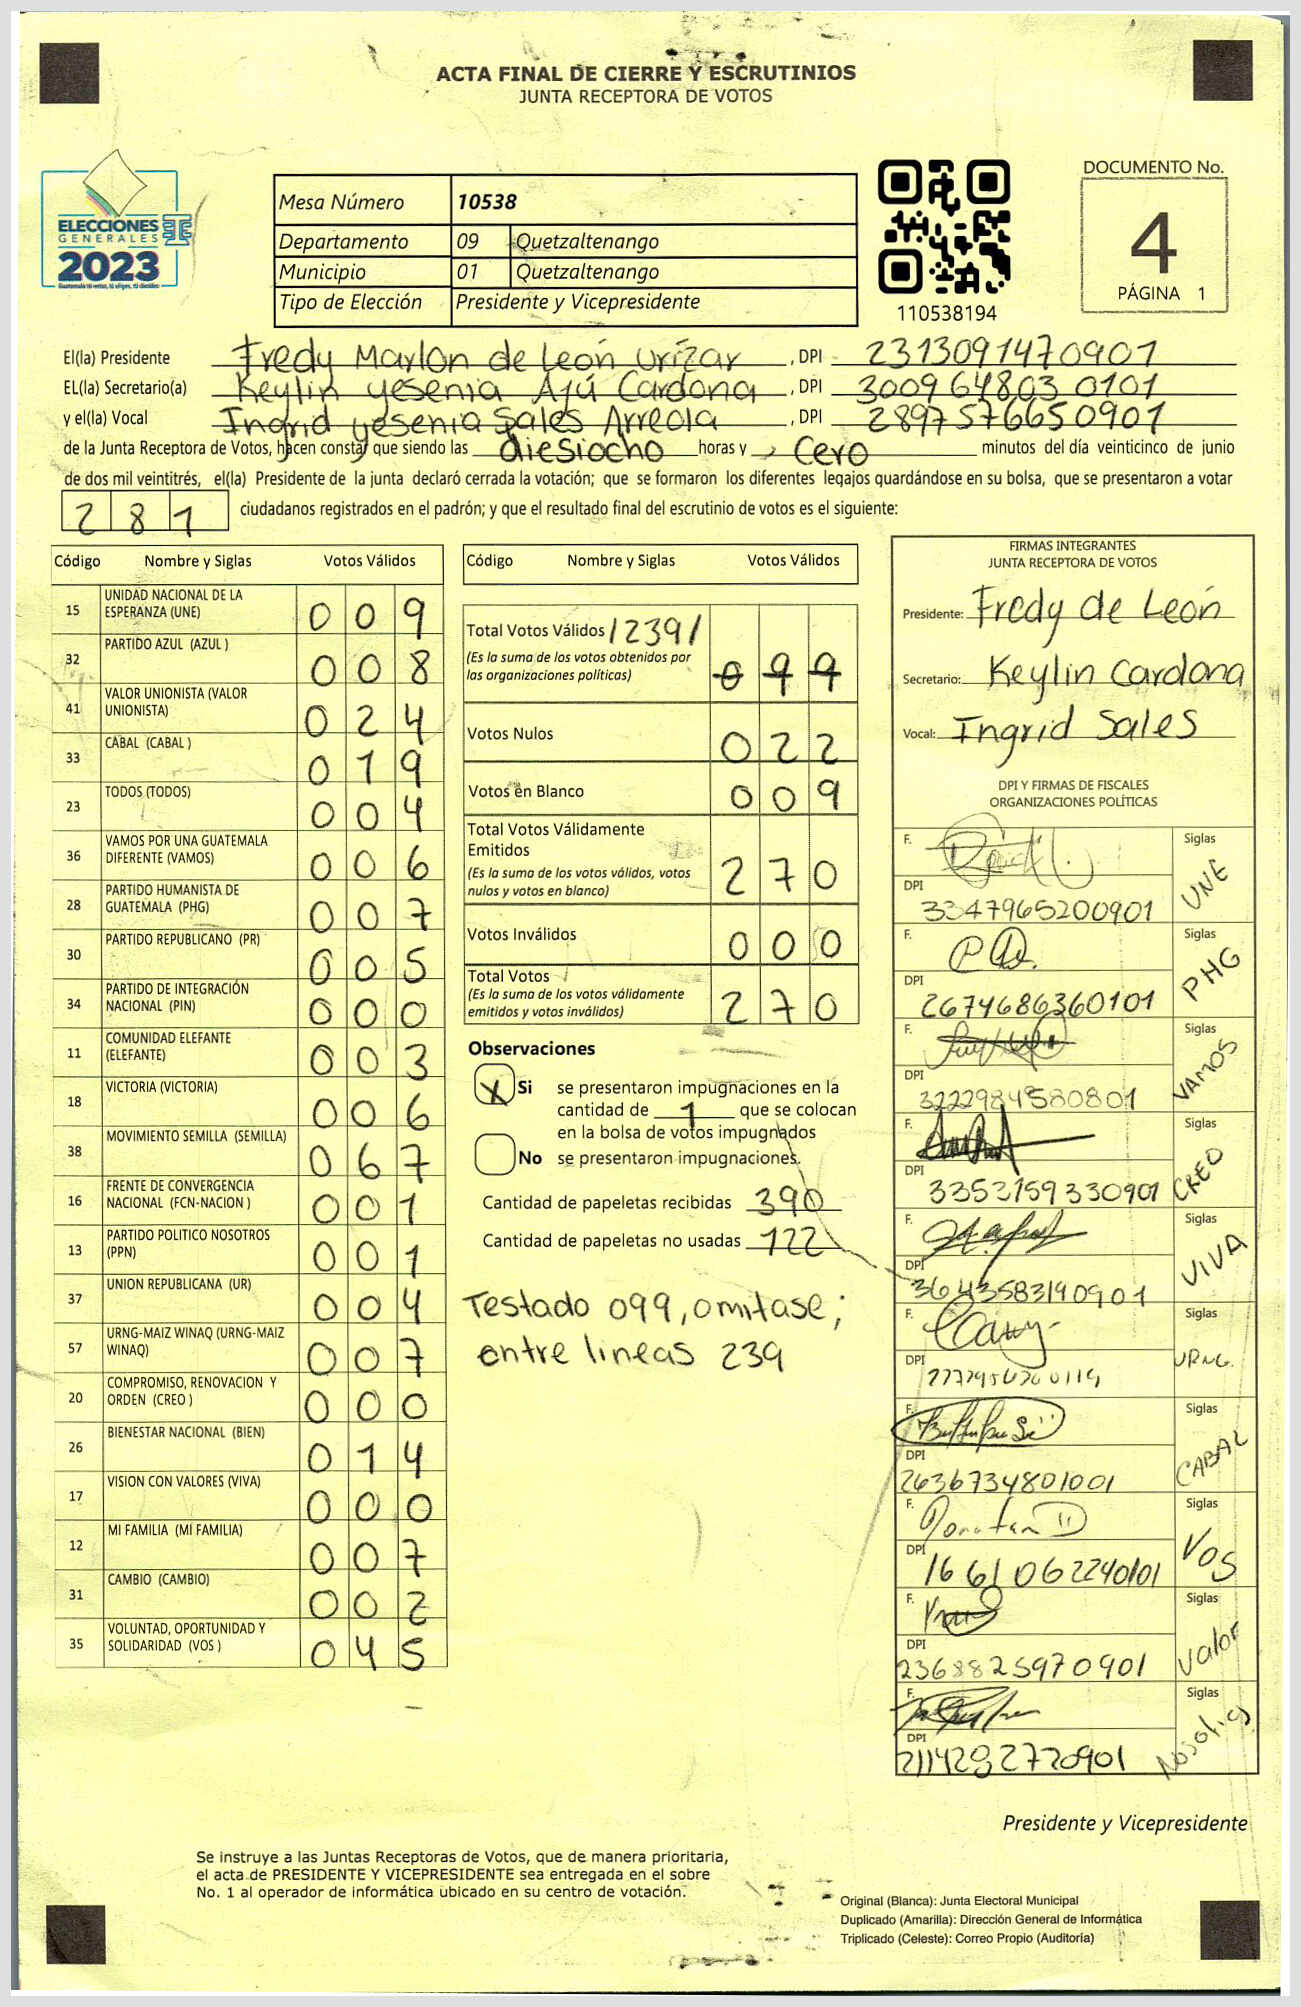 ACTA FINAL DE CIERRE Y ESCRUTINIOS
JUNTA RECEPTORA DE VOTOS
ELECCIONES
GENERALES
2023
Mesa Número 10538
Departamento 09 Quetzaltenango
Municipio 01 Quetzaltenango
Tipo de Elección Presidente y Vicepresidente
110538194
DOCUMENTO No.
4
PÁGINA 1
El(la) Presidente Fredy Marlon de León Urízar , DPI 2313091470901
EL(la) Secretario(a) Keylin yesenia Ajú Cardona , DPI 300964803 0101
y el(la) Vocal Ingrid yesenia Sales Arreola , DPI 2897576650901
de la Junta Receptora de Votos, hacen constar que siendo las diesiocho horas y cero minutos del día veinticinco de junio
de dos mil veintitrés, el(la) Presidente de la junta declaró cerrada la votación; que se formaron los diferentes legajos guardándose en su bolsa, que se presentaron a votar
281 ciudadanos registrados en el padrón; y que el resultado final del escrutinio de votos es el siguiente:
Código Nombre y Siglas Votos Válidos
15 UNIDAD NACIONAL DE LA
ESPERANZA (UNE) 009
32 PARTIDO AZUL (AZUL ) 008
41 VALOR UNIONISTA (VALOR
UNIONISTA) 024
33 CABAL (CABAL ) 019
23 TODOS (TODOS) 004
36 VAMOS POR UNA GUATEMALA
DIFERENTE (VAMOS) 006
28 PARTIDO HUMANISTA DE
GUATEMALA (PHG) 007
30 PARTIDO REPUBLICANO (PR) 005
34 PARTIDO DE INTEGRACIÓN
NACIONAL (PIN) 000
11 COMUNIDAD ELEFANTE
(ELEFANTE) 003
18 VICTORIA (VICTORIA) 006
38 MOVIMIENTO SEMILLA (SEMILLA) 067
16 FRENTE DE CONVERGENCIA
NACIONAL (FCN-NACION ) 001
13 PARTIDO POLITICO NOSOTROS
(PPN) 001
37 UNION REPUBLICANA (UR) 004
57 URNG-MAIZ WINAQ (URNG-MAIZ
WINAQ) 007
20 COMPROMISO, RENOVACION Y
ORDEN (CREO ) 000
26 BIENESTAR NACIONAL (BIEN) 014
17 VISION CON VALORES (VIVA) 000
12 MI FAMILIA (MI FAMILIA) 007
31 CAMBIO (CAMBIO) 002
35 VOLUNTAD, OPORTUNIDAD Y
SOLIDARIDAD (VOS ) 045
Código Nombre y Siglas Votos Válidos
Total Votos Válidos /239/
(Es la suma de los votos obtenidos por
las organizaciones políticas) 099
Votos Nulos 022
Votos en Blanco 009
Total Votos Válidamente
Emitidos
(Es la suma de los votos válidos, votos
nulos y votos en blanco) 270
Votos Inválidos 000
Total Votos
(Es la suma de los votos válidamente
emitidos y votos inválidos) 270
Observaciones
X Si se presentaron impugnaciones en la
cantidad de 1 que se colocan
en la bolsa de votos impugnados
No se presentaron impugnaciones.
Cantidad de papeletas recibidas 390
Cantidad de papeletas no usadas 122
Testado 099, omitase;
entre lineas 239
FIRMAS INTEGRANTES
JUNTA RECEPTORA DE VOTOS
Presidente: Fredy de León
Secretario: Keylin Cardona
Vocal: Ingrid Sales
DPI Y FIRMAS DE FISCALES
ORGANIZACIONES POLÍTICAS
F. Siglas
UNE
DPI
3347965200901
F. Siglas
PHG
DPI
2674686360101
F. Siglas
VAMOS
DPI
3222984580801
F. Siglas
CREO
DPI
3353159330901
F. Siglas
VIVA
DPI
3643583190901
F. Siglas
URNG.
DPI
F. Siglas
CABAL
DPI
2636734801001
F. Siglas
VOS
DPI
1661062240101
F. Siglas
Valor
DPI
2368825970901
F. Siglas
DPI
2114282720901
Presidente y Vicepresidente
Se instruye a las Juntas Receptoras de Votos, que de manera prioritaria,
el acta de PRESIDENTE Y VICEPRESIDENTE sea entregada en el sobre
No. 1 al operador de informática ubicado en su centro de votación.
Original (Blanca): Junta Electoral Municipal
Duplicado (Amarilla): Dirección General de Informática
Triplicado (Celeste): Correo Propio (Auditoría)